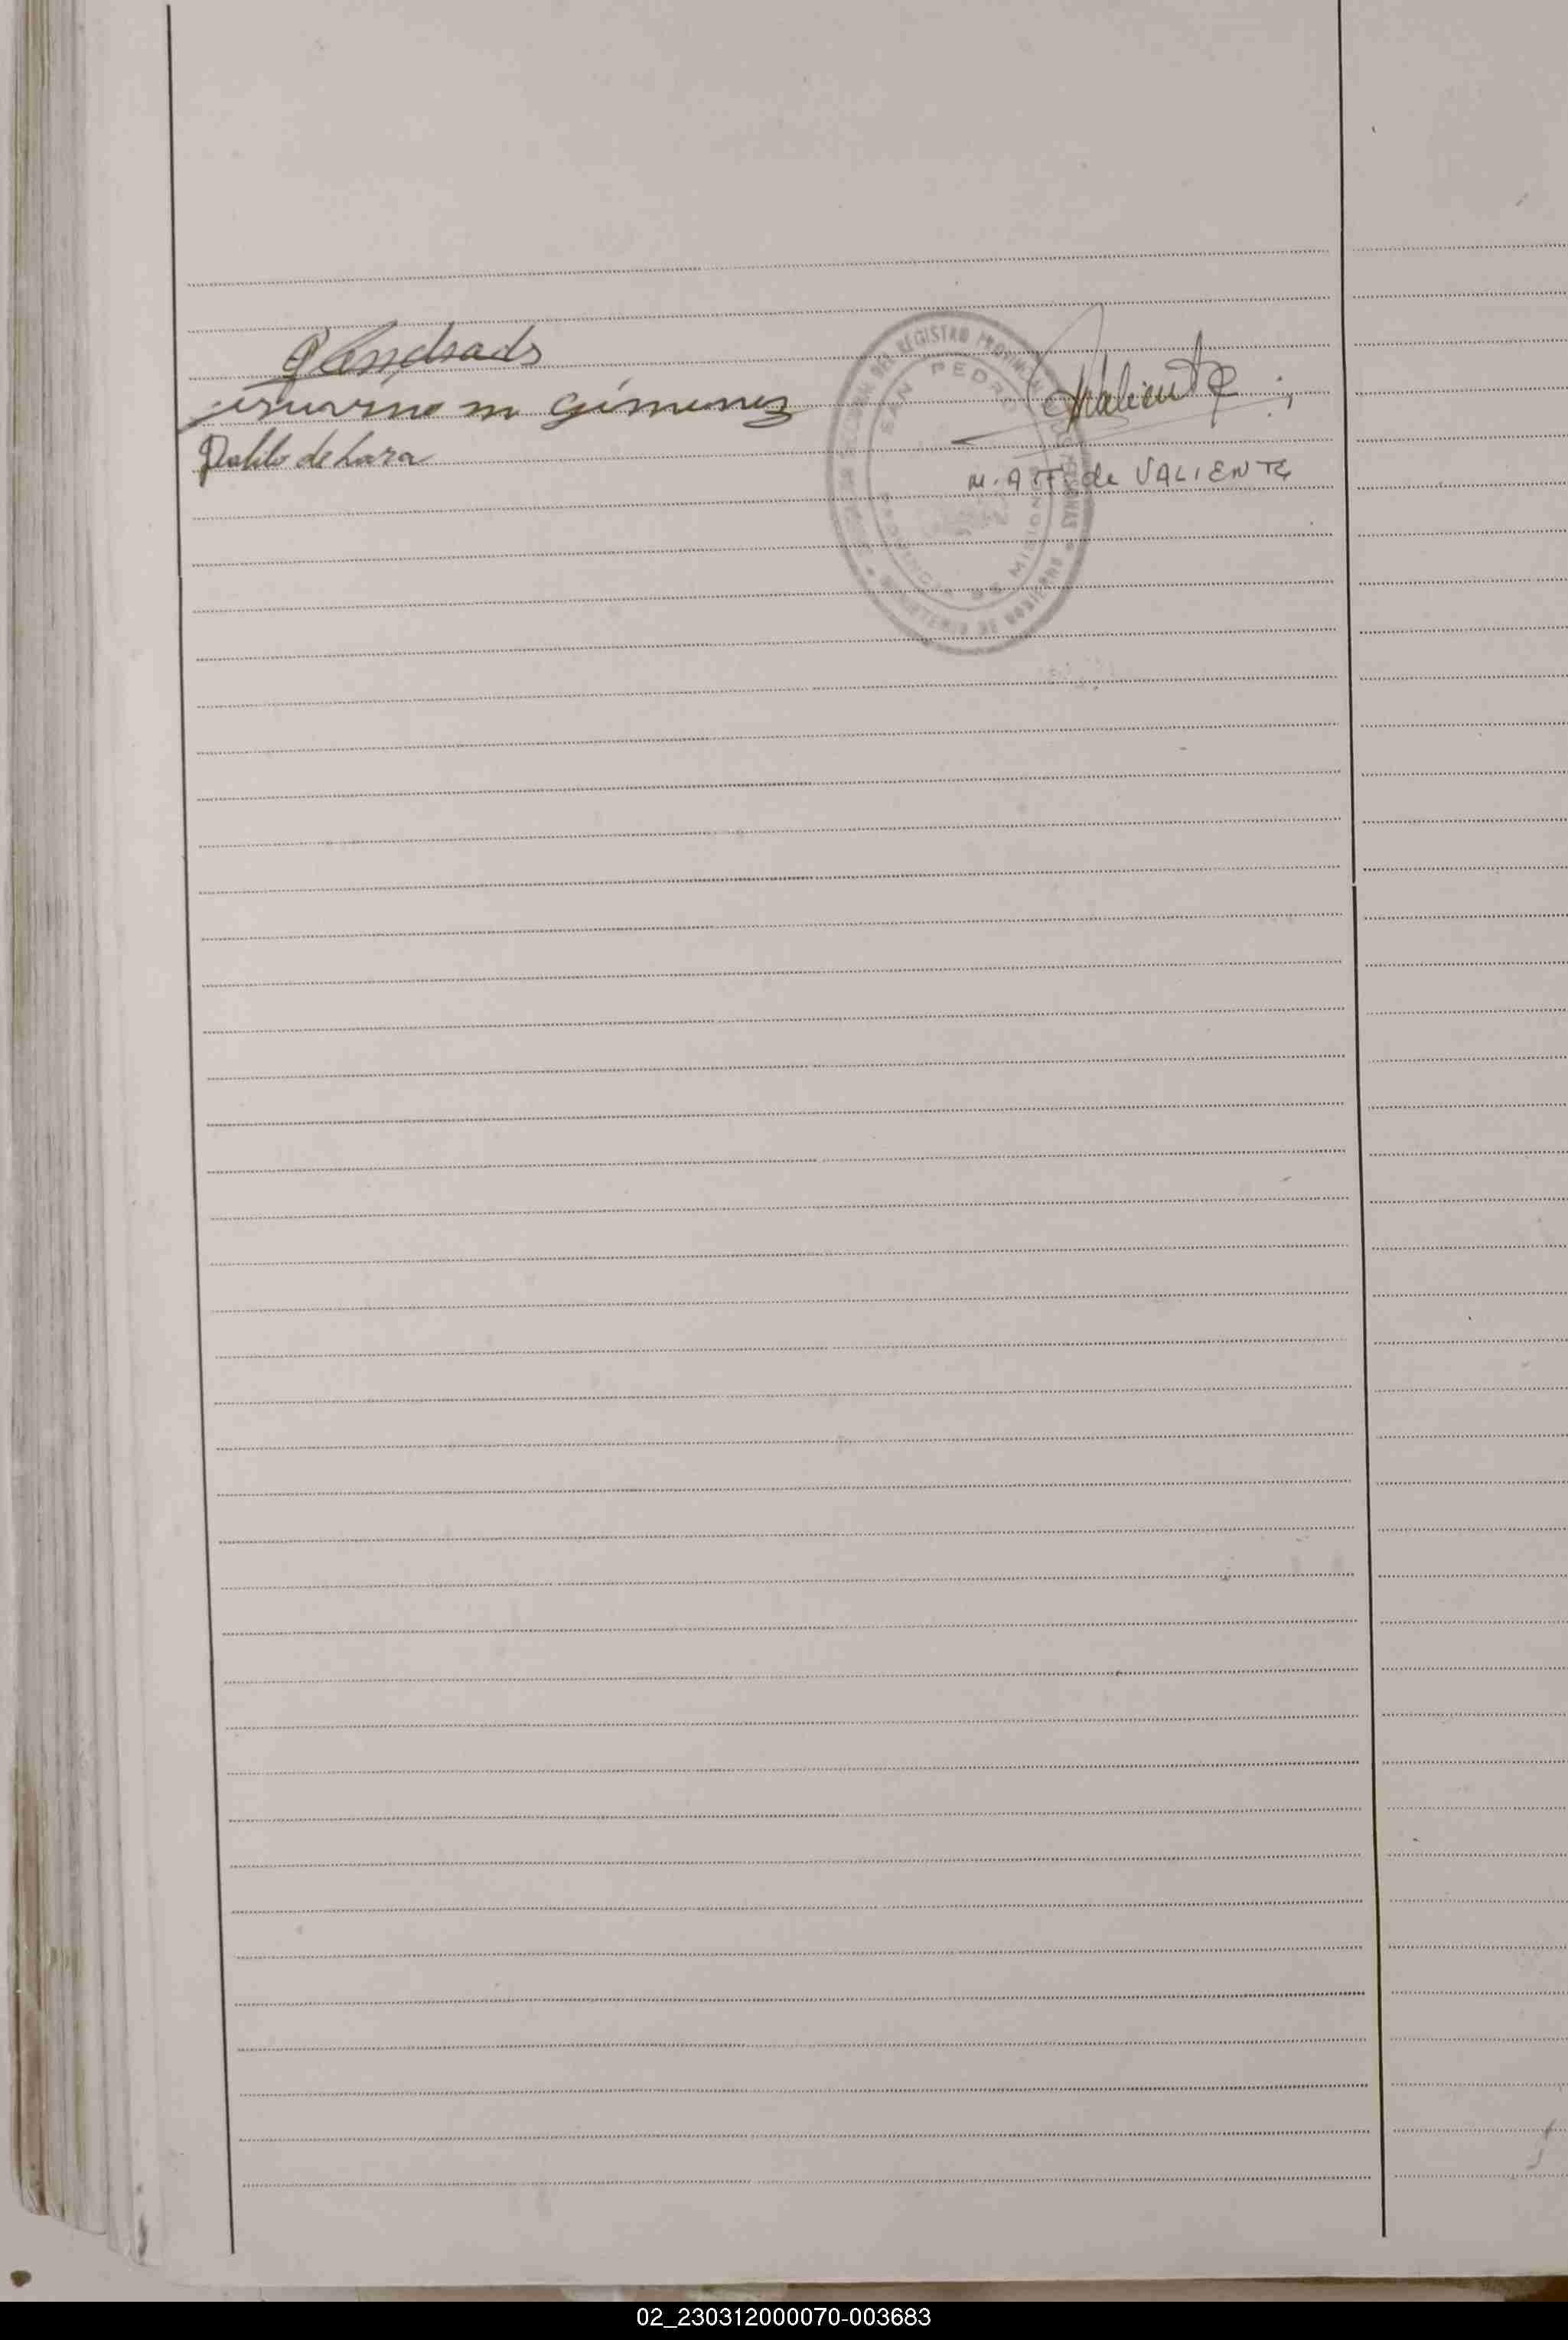 Andrade
m Gimenez
Pablo de Lara
Valiente
M. A. F. de VALIENTE
REGISTRO PROVINCIAL DE LAS PERSONAS
SAN PEDRO
MISIONES
MINISTERIO DE GOBIERNO
02_230312000070-003683